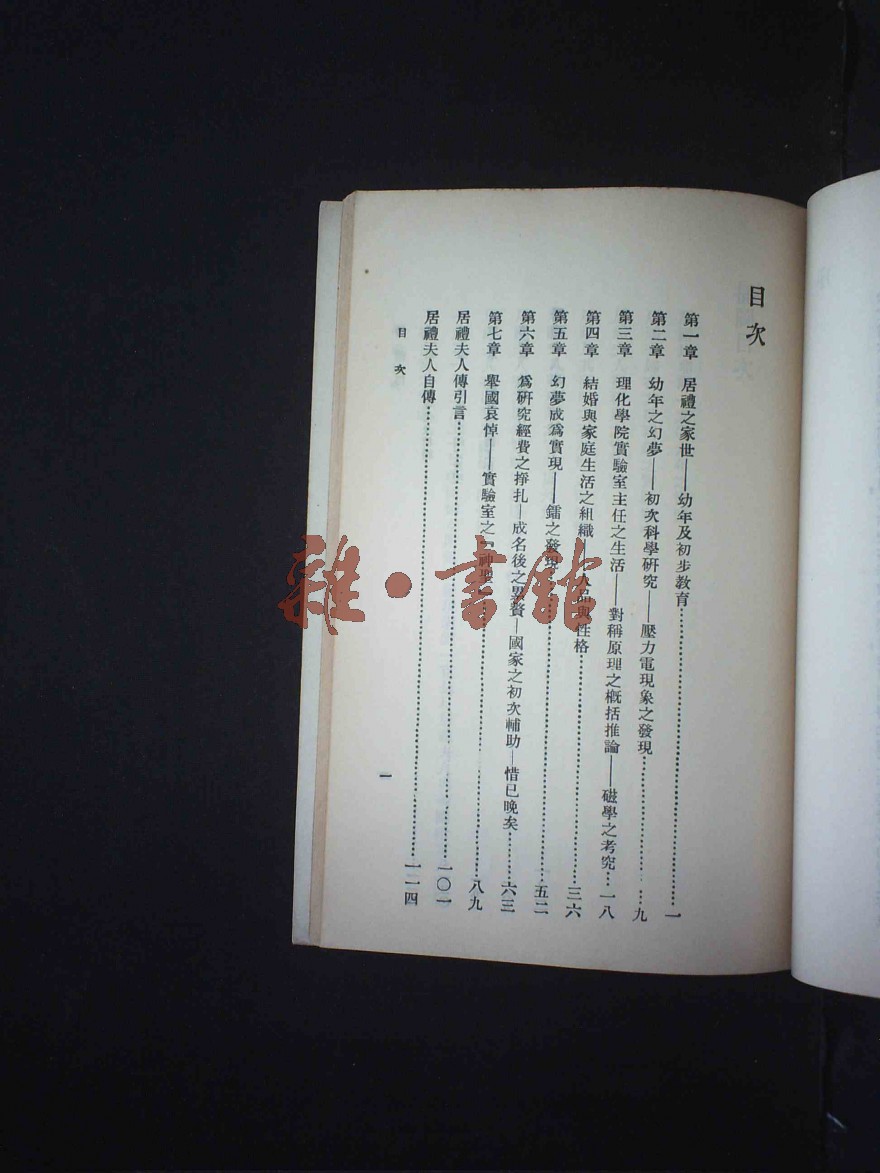 目次
第一章 居禮之家世——幼年及初步教育……一
第二章 幼年之幻夢——初次科學硏究——壓力電現象之發現……九
第三章 理化學院實驗室主任之生活——對稱原理之槪括推論——磁學之考究……一八
第四章 結婚與家庭生活之組織——人品與性格……三六
第五章 幻夢成爲實現——鐳之發現……五二
第六章 爲硏究經費之掙扎—成名後之累贅—國家之初次輔助—惜已晚矣……六三
第七章 舉國哀悼——實驗室之「神聖」……八九
居禮夫人傳引言……一〇一
居禮夫人自傳……一一四
目次
一
雜·書館